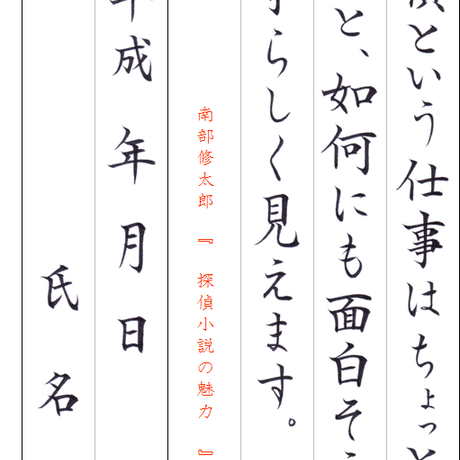 という仕事はちょっと
と、如何にも面白そ
らしく見えます。
南部修太郎 『 探偵小説の魅力 』
平成 年 月 日
氏 名